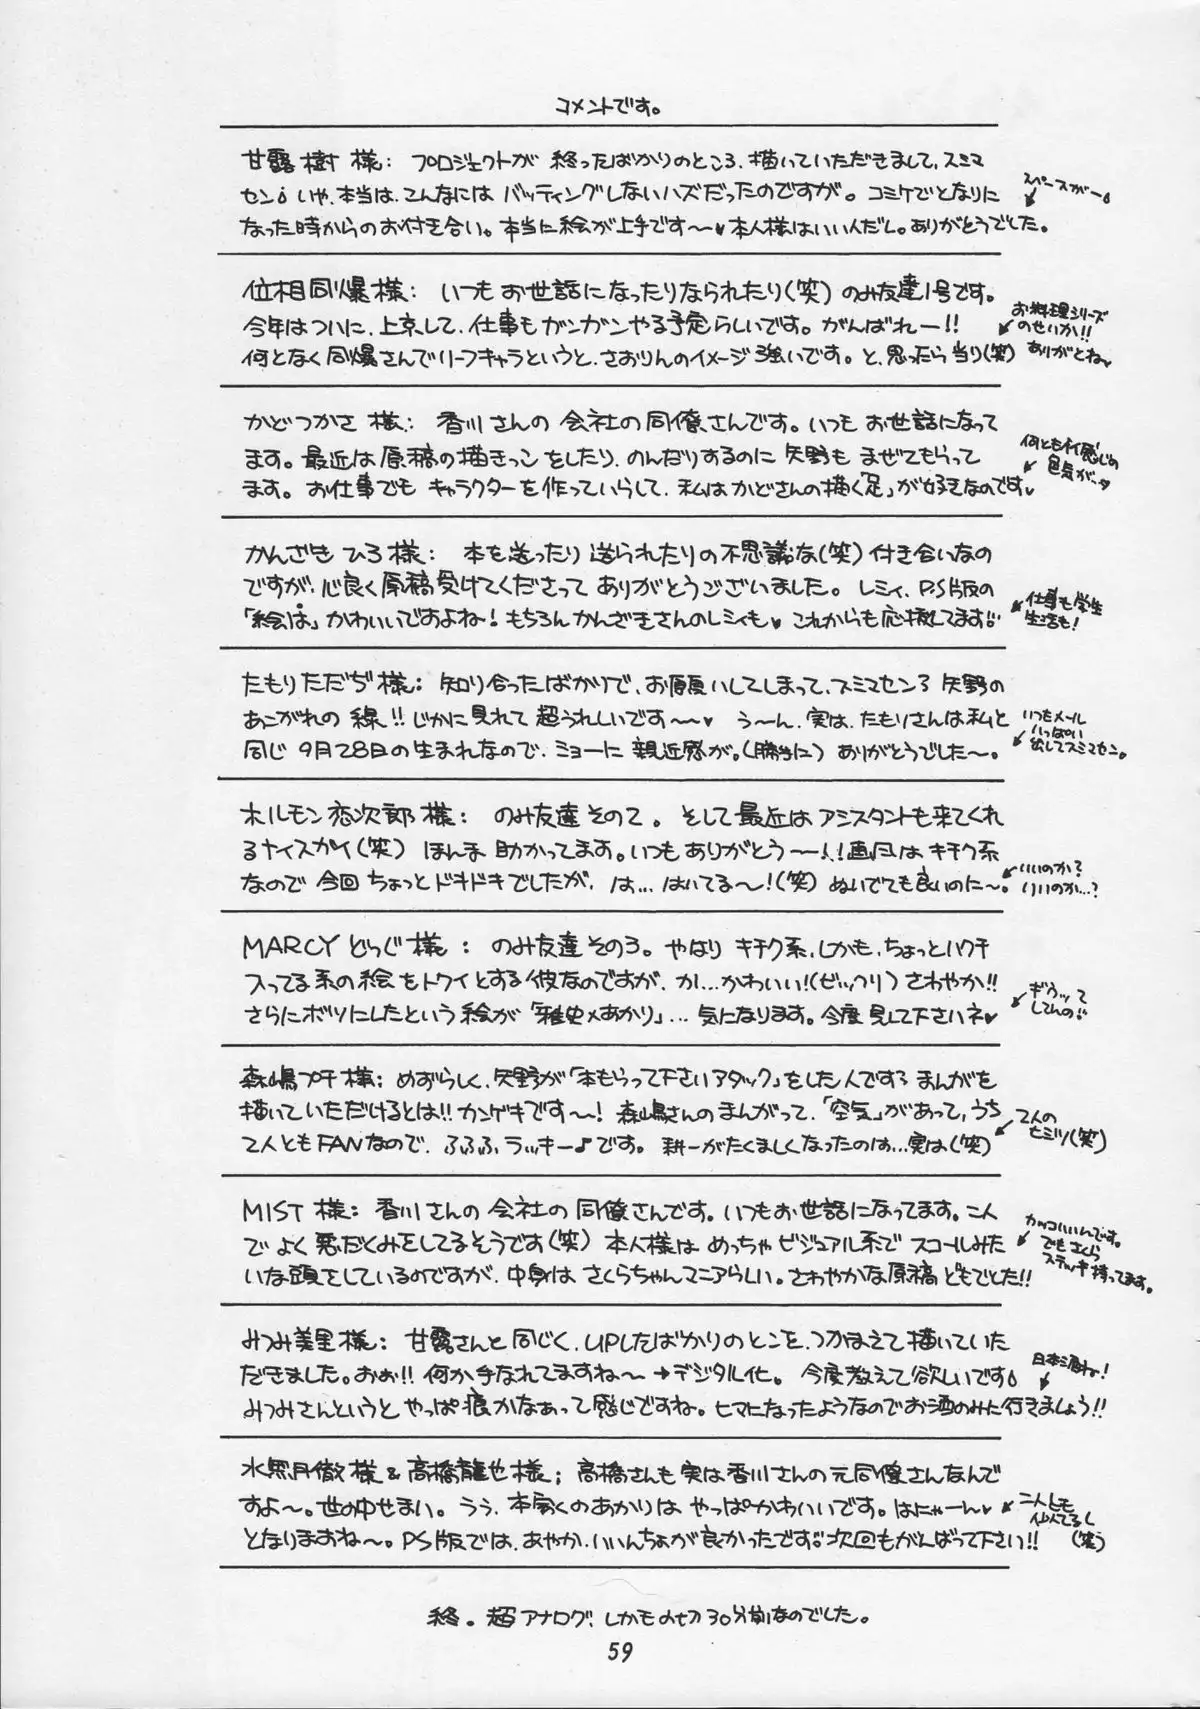 コメントです。
甘露樹様: プロジェクトが終ったばかりのところ、描いていただきまして、スミマ
セン。いや、本当は、こんなにはバッティングしないハズだったのですが。コミケでとなりに
なった時からのお付き合い。本当に絵が上手です〜♥本人様はいい人だし。ありがとうでした。
スペースがー
位相同爆様: いつもお世話になったりなられたり(笑)のみ友達1号です。
今年はついに、上京して、仕事もガンガンやる予定らしいです。がんばれー!!
何となく同爆さんでリーフキャラというと、さおりんのイメージ強いです。と、思ったら当り(笑)
お料理シリーズ
のせいか!!
ありがとね♥
かどつかさ様: 香川さんの会社の同僚さんです。いつもお世話になって
ます。最近は原稿の描きっこをしたり、のんだりするのに矢野もまぜてもらって
ます。お仕事でもキャラクターを作っていらして、私はかどさんの描く「足」が好きなのです♥
何ともイイ感じの
色気が…♥
かんざきひろ様: 本を送ったり送られたりの不思議な(笑)付き合いなの
ですが、心良く原稿受けてくださってありがとうございました。レミィ、PS版の
「絵は」かわいいですよね!もちろんかんざきさんのレミィも♥これからも応援してます!!
仕事も学生
生活も!
たもりただぢ様: 知り合ったばかりで、お願いしてしまって、スミマセンろ 矢野の
あこがれの線!!じかに見れて超うれしいです〜〜♥ う〜ん、実は、たもりさんは私と
同じ9月28日の生まれなので、ミョーに親近感が。(勝手に)ありがとうでした〜。
いつもメール
いっぱい
出してスミマセン。
ホルモン恋次郎様: のみ友達その2。そして最近はアシスタントも来てくれ
るナイスガイ(笑)ほんま助かってます。いつもありがとう〜!!画風はキチク系
なので今回ちょっとドキドキでしたが、は…はいてる〜!(笑)ぬいでても良いのに〜。
いいのか?
いいのか…?
MARCYどっぐ様: のみ友達その3。やはりキチク系、しかも、ちょっとハクチ
入ってる系の絵をトクイとする彼なのですが、か…かわいい!(ビックリ)さわやか!!
さらにボツにしたという絵が「雅史×あかり」…気になります。今度見して下さいネ♥
ギクッて
してんの!!
森嶋プチ様: めずらしく、矢野が「本もらって下さいアタック」をした人ですろ まんがを
描いていただけるとは!!カンゲキです〜!森嶋さんのまんがって、「空気」があって、うち
2人ともFANなので、ふふふ ラッキー♪です。耕一がたくましくなったのは…実は(笑)
2人の
ヒミツ(笑)
MIST様: 香川さんの会社の同僚さんです。いつもお世話になってます。二人
でよく悪だくみをしてるそうです(笑)本人様はめっちゃビジュアル系でスコールみた
いな頭をしているのですが、中身はさくらちゃんマニアらしい。さわやかな原稿どもでした!!
カッコいいんです。
でもさくら
ステッキ持ってます。
みつみ美里様: 甘露さんと同じく、UPしたばかりのとこを、つかまえて描いていた
だきました。おぉ!!何か手なれてますね〜→デジタル化。今度教えて欲しいです
みつみさんというとやっぱ痕かなあって感じですね。ヒマになったようなのでお酒のみに行きましょう!!
日本酒ね!
水無月徹様&高橋龍也様; 高橋さんも実は香川さんの元同僚さんなんで
すよ〜。世の中せまい。うぅ、本家のあかりはやっぱかわいいです。はにゃーん♥
となりますね〜。PS版では、あやか、いいんちょが良かったです!!次回もがんばって下さい!!
二人とも
似てるし
(笑)
終。超アナログ、しかも〆切30分前なのでした。
59